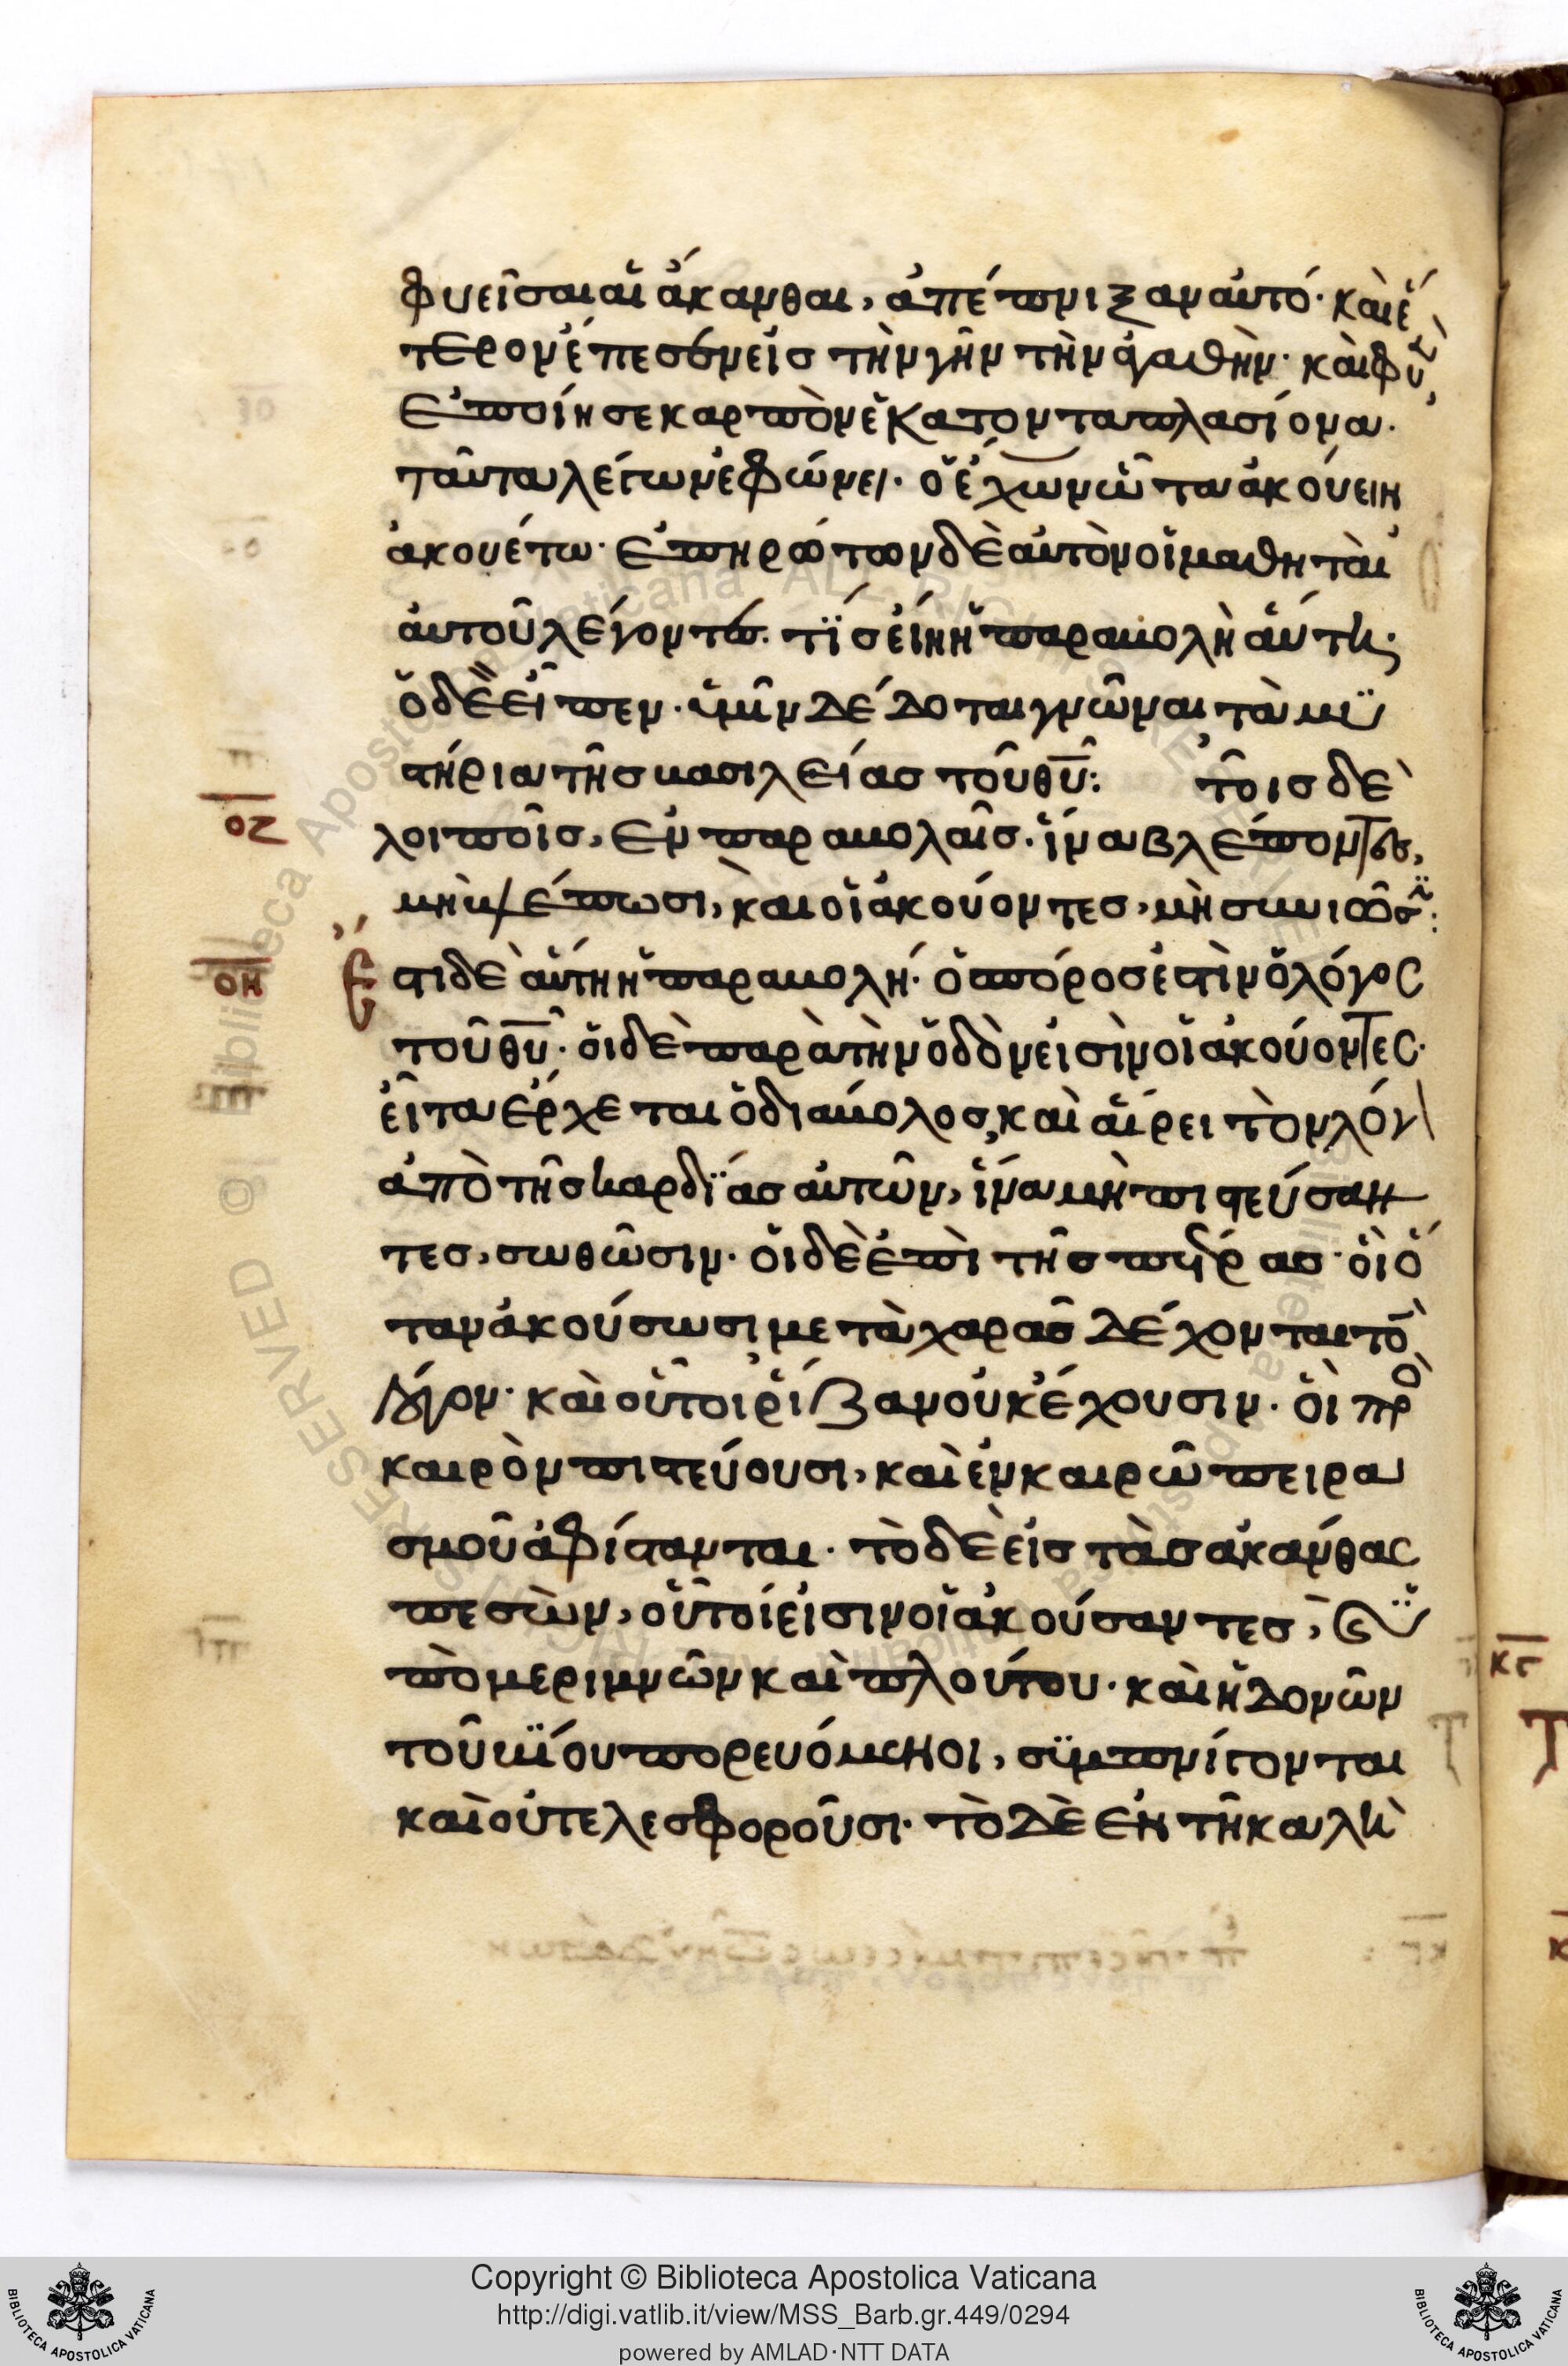 φυεῖσαι αἱ ἄκανθαι, ἀπέπνιξαν αὐτό· καὶ ἕ
τερον ἔπεσεν εἰς τὴν γῆν τὴν ἀγαθὴν· καὶ φυὲν
ἐποίησε καρπὸν ἑκατονταπλασίονα·
ταῦτα λέγων ἐφώνει· ὁ ἔχων ὦτα ἀκούειν
ἀκουέτω· ἐπηρώτων δὲ αὐτὸν οἱ μαθηταὶ
αὐτοῦ λέγοντες· τίς εἴη ἡ παραβολὴ αὕτη·
ὁ δὲ εἶπεν· ὑμῖν δέδοται γνῶναι τὰ μυ
τήρια τῆς βασιλείας τοῦ θ̅υ̅: τοῖς δὲ
οζ
λοιποῖς, ἐν παραβολαῖς· ἵνα βλέποντες,
μὴ βλέπωσι, καὶ οἱ ἀκούοντες, μὴ συνιῶσιν:
οη
Ἔστι δὲ αὕτη ἡ παραβολή· ὁ σπόρος ἐστὶν ὁ λόγος
τοῦ θ̅υ̅· οἱ δὲ παρὰ τὴν ὁδὸν εἰσὶν οἱ ἀκούοντες·
εἶτα ἔρχεται ὁ διάβολος, καὶ αἴρει τὸν λόγον
ἀπὸ τῆς καρδίας αὐτῶν, ἵνα μὴ πιστεύσαν
τες, σωθῶσιν· οἱ δὲ ἐπὶ τῆς πέτρας· οἳ ὅ
ταν ἀκούσωσι μετὰ χαρᾶς δέχονται τὸν
λόγον· καὶ οὗτοι ῥίζαν οὐκ ἔχουσιν· οἳ πρὸς
καιρὸν πιστεύουσι, καὶ ἐν καιρῶ πειρα
σμοῦ ἀφίστανται· τὸ δὲ εἰς τὰς ἀκάνθας
πεσὼν, οὗτοί εἰσιν οἱ ἀκούσαντες, καὶ ὑ
πὸ μεριμνῶν καὶ πλούτου· καὶ ἡδονῶν
τοῦ βίου πορευόμενοι, συμπνίγονται
καὶ οὐ τελεσφοροῦσι· τὸ δὲ ἐν τῆ καλῆ
κς
Copyright © Biblioteca Apostolica Vaticana
http://digi.vatlib.it/view/MSS_Barb.gr.449/0294
powered by AMLAD·NTT DATA
BIBLIOTECA APOSTOLICA VATICANA
BIBLIOTECA APOSTOLICA VATICANA